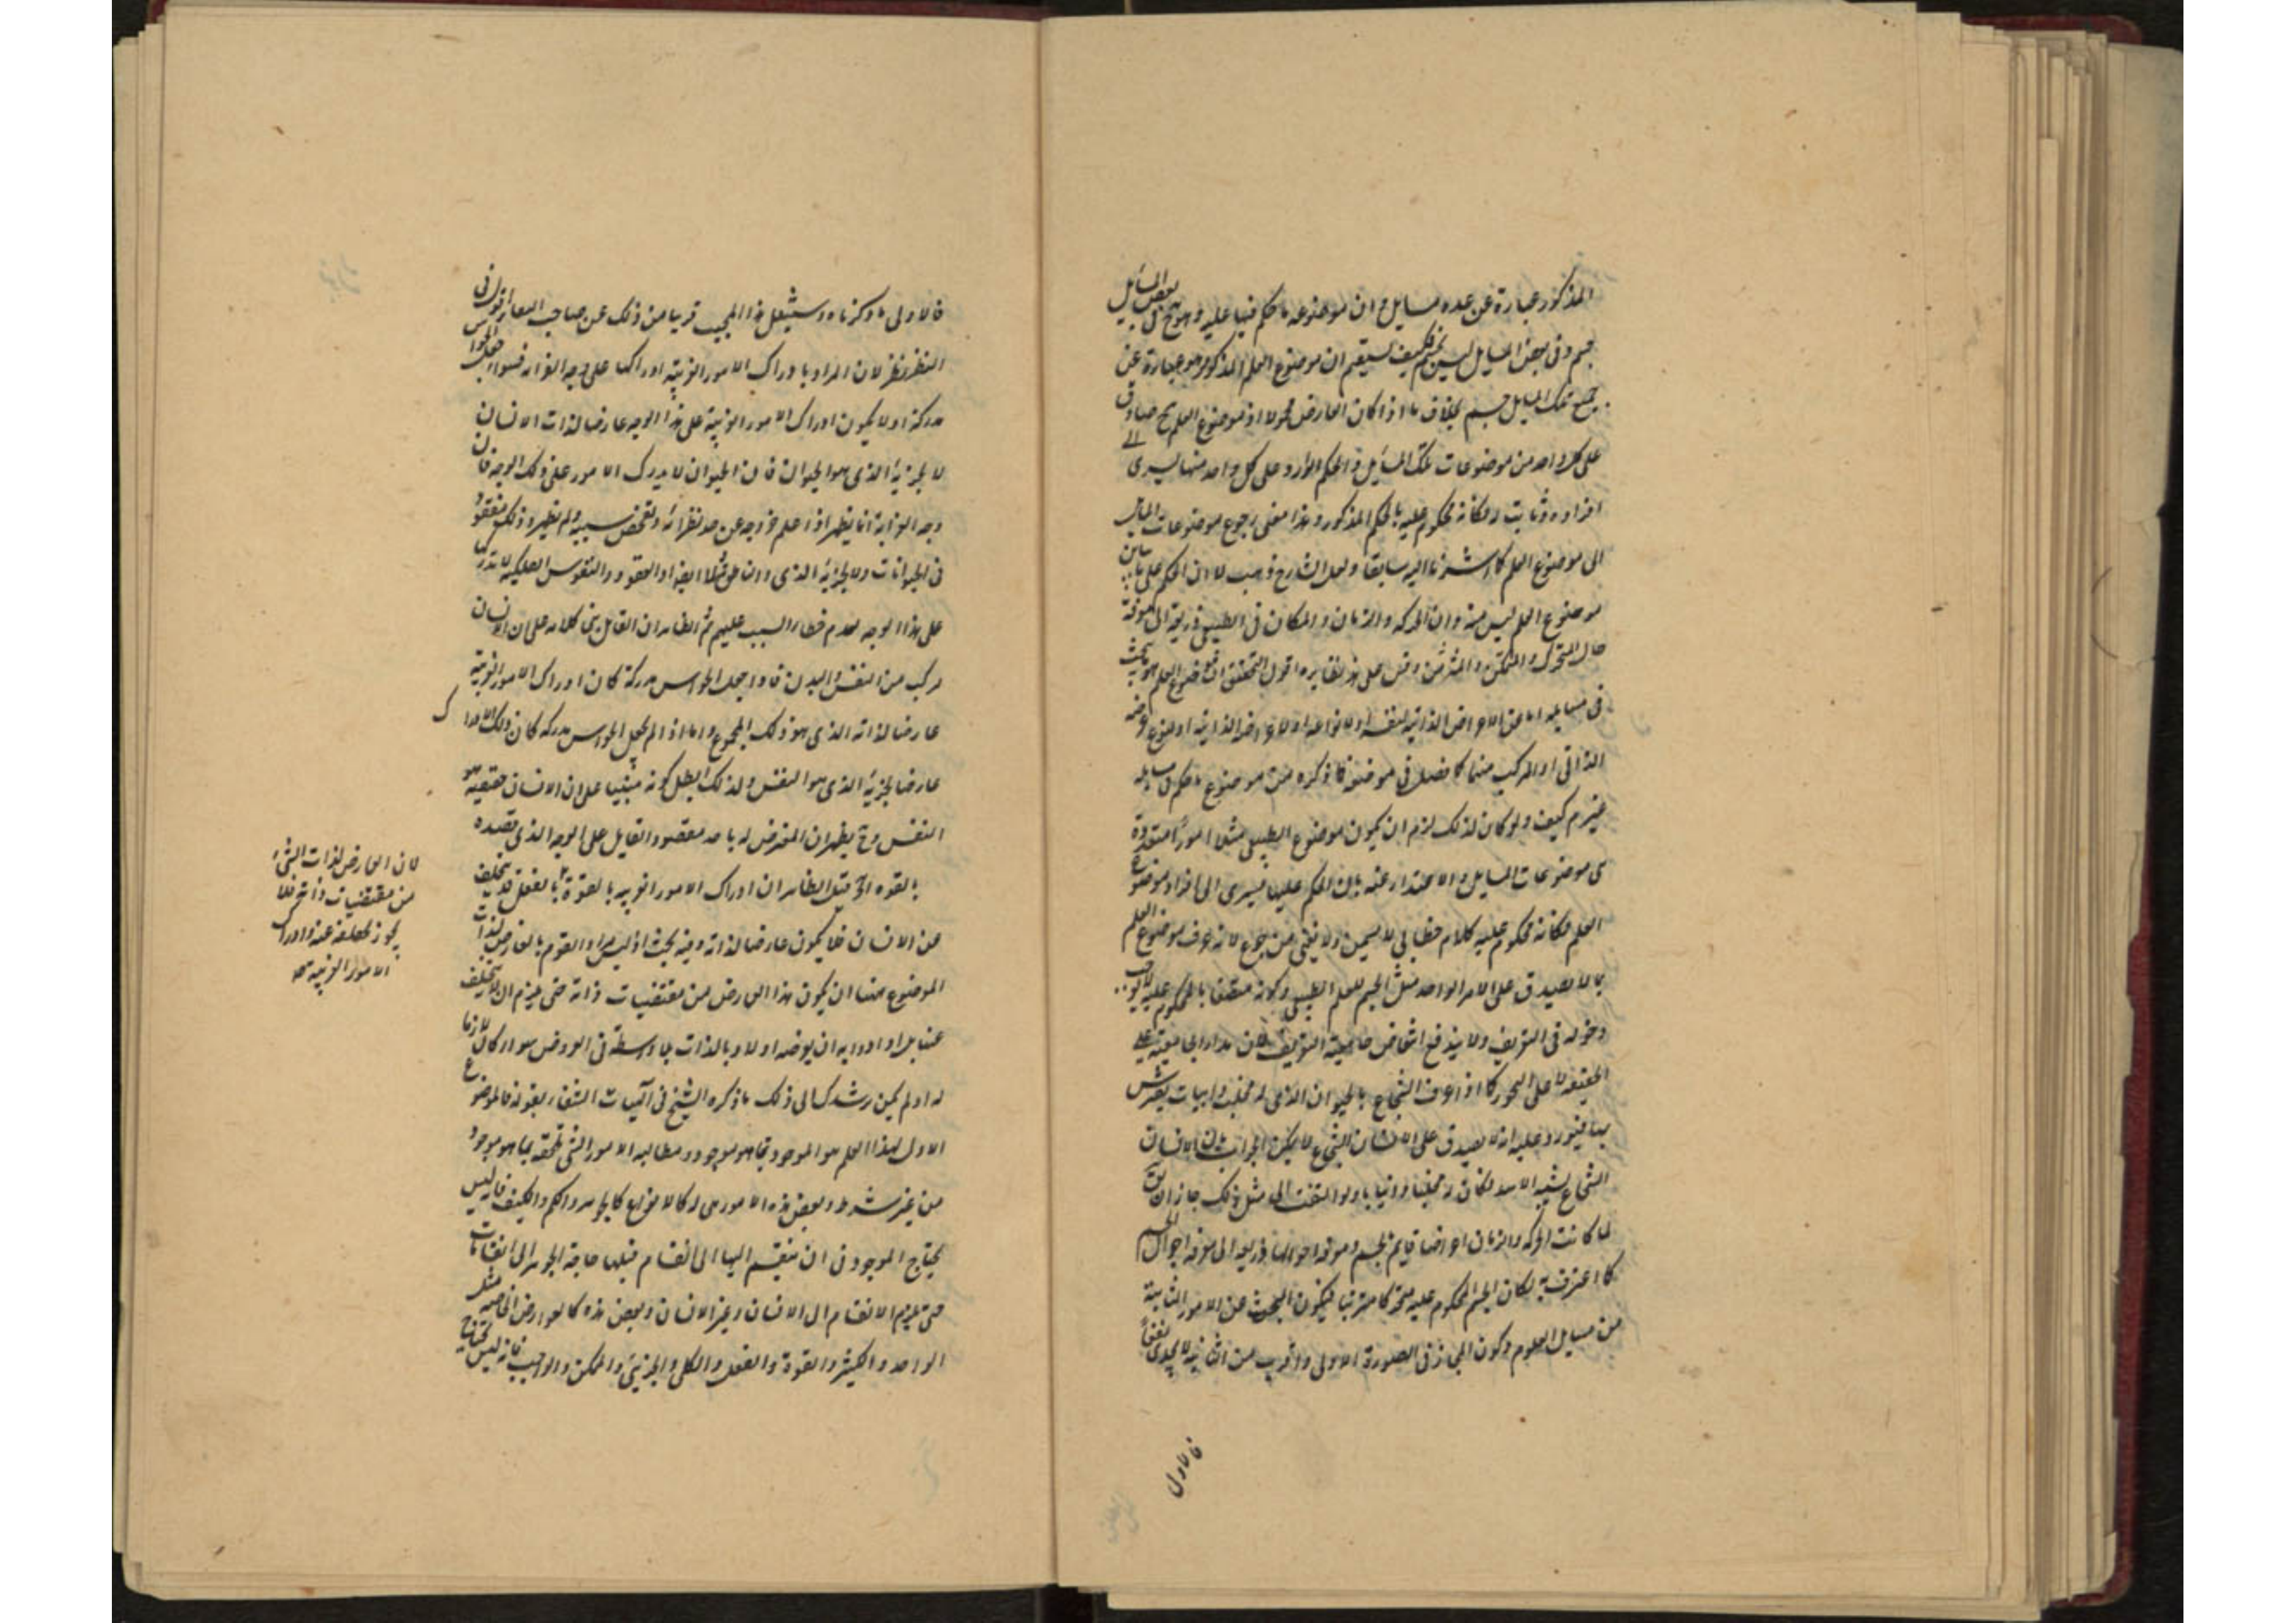 المذكور عبارة عن عده مسايل ح ان موضوعه ما حكم فيها عليه وهو في بعض المسايل
جسم وفى بعض المسايل ليس بجسم فكيف يستقيم ان موضوع العلم المذكور هو عبارة عن
جميع تلك المسايل جسم بخلاف ما اذا كان العارض محمولا اذ موضوع العلم ح صادق
على كل واحد من موضوعات تلك المسايل فالحكم الوارد على كل واحد منها يسرى الى
افراده وثابت له فكانه محكوم عليه بالحكم المذكور وهذا معنى رجوع موضوعات المسايل
الى موضوع العلم كما اشرنا اليه سابقا ولعل الشارح ذهب الى ان الحكم على ما يباين
موضوع العلم ليس منه وان الحركه والزمان والمكان فى الطبيعى ذريعة الى معرفة
حال المتحرك والمتمكن والمتزمن وقس على هذا نظايره اقول التحقيق ان موضوع العلم هو ما يبحث
فى مسايله اما عن الاعراض الذاتية لنفسه او لانواعه او لاعراضه الذاتية او لنوع عرضه
الذاتى او المركب منهما كما فصل فى موضعه فما ذكره من موضوع ما حكم فى مسايله
غير م كيف ولو كان كذلك لزم ان يكون موضوع الطبيعى مثلا امورا متعددة
هى موضوعات المسايل والاعتذار عنه بان الحكم عليها يسرى الى افراد موضوع
العلم فكانه محكوم عليه كلام خطابى لا يسمن ولا يغنى من جوع لانه عرف موضوع العلم
بما لا يصدق على الامر الواحد مثل الجسم للعلم الطبيعى وكونه متصفا بالمحكوم عليه لا يوجب
دخوله فى التعريف ولا يندفع انتقاض جامعية التعريف لان مدار الجامعية على
الحقيقة لا على التجوز كما اذا عرف الشجاع بالحيوان الذى له مخلب وانياب يفترس
بها فيورد عليه انه لا يصدق على الانسان الشجاع لا يمكن الجواب بان الانسان
الشجاع يشبه الاسد فكان له مخلبا وانيابا ولو التفت الى مثل ذلك جاز ان يقال
لما كانت الحركه والزمان اعراضا قايمة بالجسم ومعرفة احوالها ذريعة الى معرفة احوال الجسم
كما اعترف به لكان الجسم المحكوم عليه متحركا متزمنا فيكون البحث عن الامور الثابتة
من مسايل العلوم وكون المجاز فى الصورة الاولى اقرب من الثانية لا يجدى نفعا
فالاولى
فالاولى ما ذكرناه وسينقل هذا المجيب قريبا من ذلك عن صاحب المعارف قوله فى
النظر نظر لان المراد بادراك الامور الغريبة ادراكها على وجه الغرابة فسواء جعل الحواس
مدركة او لا يكون ادراك الامور الغريبة على هذا الوجه عارضا لذات الانسان
لا لجزئه الذى هو الحيوان فان الحيوان لا يدرك الامور على ذلك الوجه فان
وجه الغرابة انما يظهر اذا علم خروجه عن حد نظائره وتفحص سببه ولم يظهر وذلك مفقود
فى الحيوانات ولا لجزئه الذى الناطق مثلا ايضا اذ العقول والنفوس الفلكية لا تدركها
على هذا الوجه لعدم خفاء السبب عليهم ثم الظاهر ان القايل بنى كلامه على ان الانسان
مركب من النفس والبدن فاذا جعل الحواس مدركة كان ادراك الامور الغريبة
عارضا لذاته الذى هو ذلك المجموع واما اذا لم يجعل الحواس مدركه كان ذلك الادراك
عارضا لجزئه الذى هو النفس ولذلك ابطل كونه مبنيا على ان الانسان حقيقة هو
النفس و ح يظهر ان المعترض له ما مد مقصود القايل على الوجه الذى قصده
بالقوه الخ قيل الظاهر ان ادراك الامور الغريبة بالقوة او بالفعل قد يتخلف
من الانسان فلا يكون عارضا لذاته وفيه بحث اذ ليس مراد القوم بالعارض لذات
الموضوع ههنا ان يكون هذا العارض من مقتضيات ذاته حتى يلزم ان لا يتخلف
عنه بل ارادوا به ان يعرضه اولا وبالذات بلا واسطة فى العروض سواء كان لازما
له او لم يكن يرشدك الى ذلك ما ذكره الشيخ فى الهيات الشفاء بقوله فالموضوع
الاول لهذا العلم هو الموجود بما هو موجود ومطالبه الامور التى تلحقه بما هو موجود
من غير شرط وبعض هذه الامور هى له كالانواع كالجوهر والكم والكيف فانه ليس
يحتاج الموجود فى ان ينقسم اليها الى انقسام قبلها حاجة الجوهر الى انقسامات
حتى يلزم الانقسام الى الانسان وغير الانسان وبعض هذه كالعوارض الخاصة مثل
الواحد والكثير والقوة والفعل والكلى والجزئى والممكن والواجب فانه ليس يحتاج
لان العارض لذات الشئ
من مقتضيات ذاته فلا
يجوز تخلفه عنه وادراك
الامور الغريبة